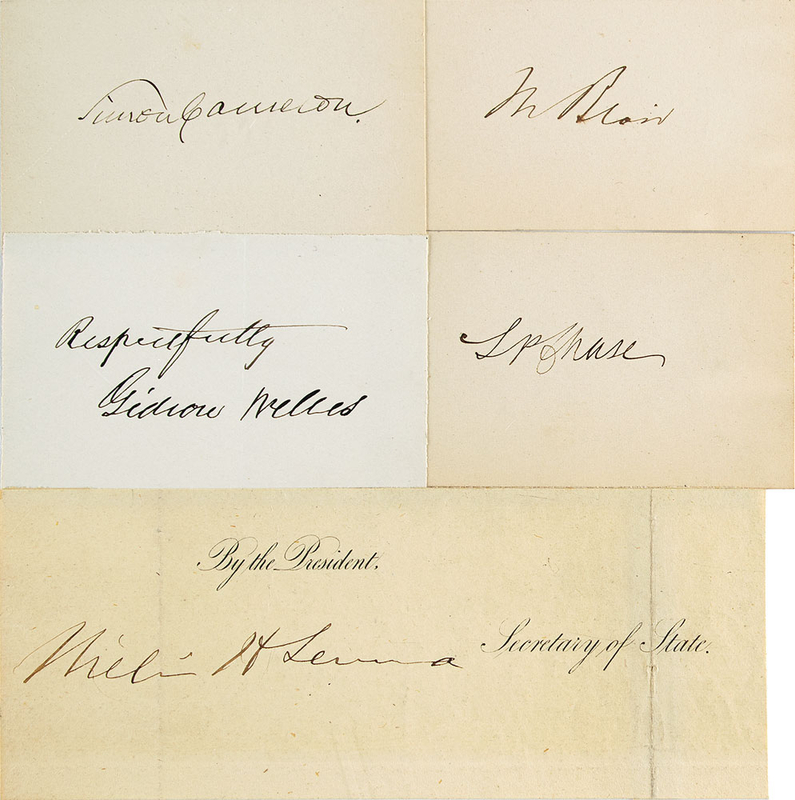 Simon Cameron.
M Blair
Respectfully
Gideon Welles
S P Chase
By the President.
William H Seward
Secretary of State.